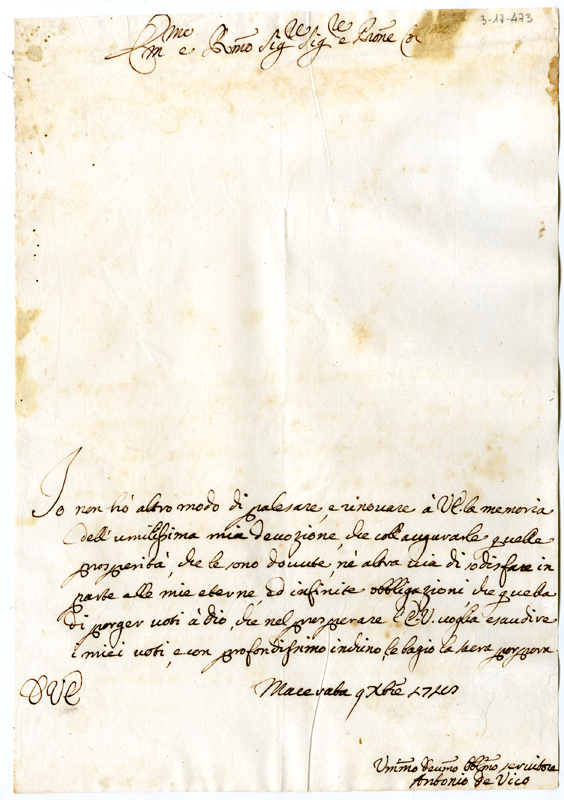 3-17-473
Em.mo e R.mo Sig.re Sig.re e Prone
Io non hò altro modo di palesare, e rinovare à V.E. la memoria
dell'umilissima mia devozione, che coll'augurarle quelle
prosperità, che le sono dovute, nè altra via di sodisfare in
parte alle mie eterne, ed infinite obbligazioni che quella
di porger voti à Dio, che nel prosperare l'E.V. voglia esaudire
i miei voti, e con profondissimo inchino, le bagio la sacra porpora
D V E
Macerata 9 Xbre
Um.mo Dev.mo Obl.mo servitore
Antonio de Vico